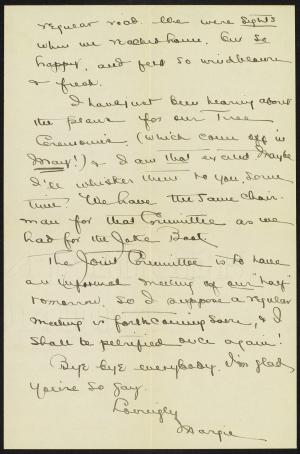 regular road. We were sights
when we reached home, but so
happy, and felt so windblown
& fresh.
I have just been hearing about
the plans for our Tree
Ceremonies (which come off in
May!) & I am that excited. Maybe
I'll whisper them to you, some
time! We have the same chair-
man for that Committee as we
had for the Joke Book.
The Joint Committee is to have
an informal meeting of our "half"
tomorrow. So I suppose a regular
meeting is forthcoming soon, & I
shall be petrified once again!
Bye bye everybody. I'm glad
you're so gay.
Lovingly
Margie